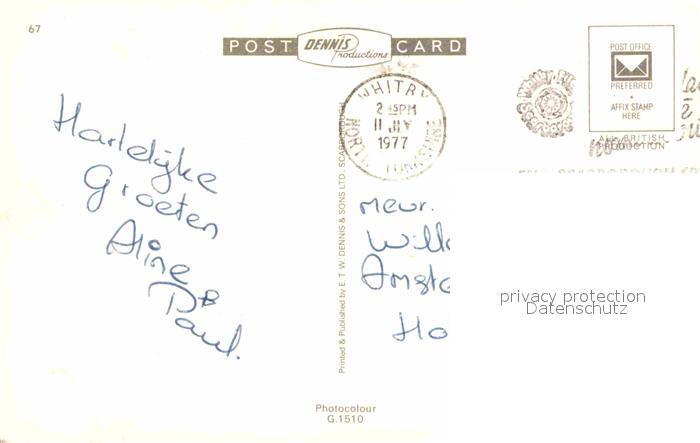 67
POST DENNIS Productions CARD
POST OFFICE
PREFERRED
AFFIX STAMP
HERE
ALL BRITISH
PRODUCTION
WHITBY
2 15PM
11 JLY
1977
NORTH YORKSHIRE
Hartelijke
Groeten
Aline &
Paul.
Printed & Published by E. T. W. DENNIS & SONS LTD., SCARBOROUGH
Meur.
Will
Amste
Ho
privacy protection
Datenschutz
Photocolour
G.1510